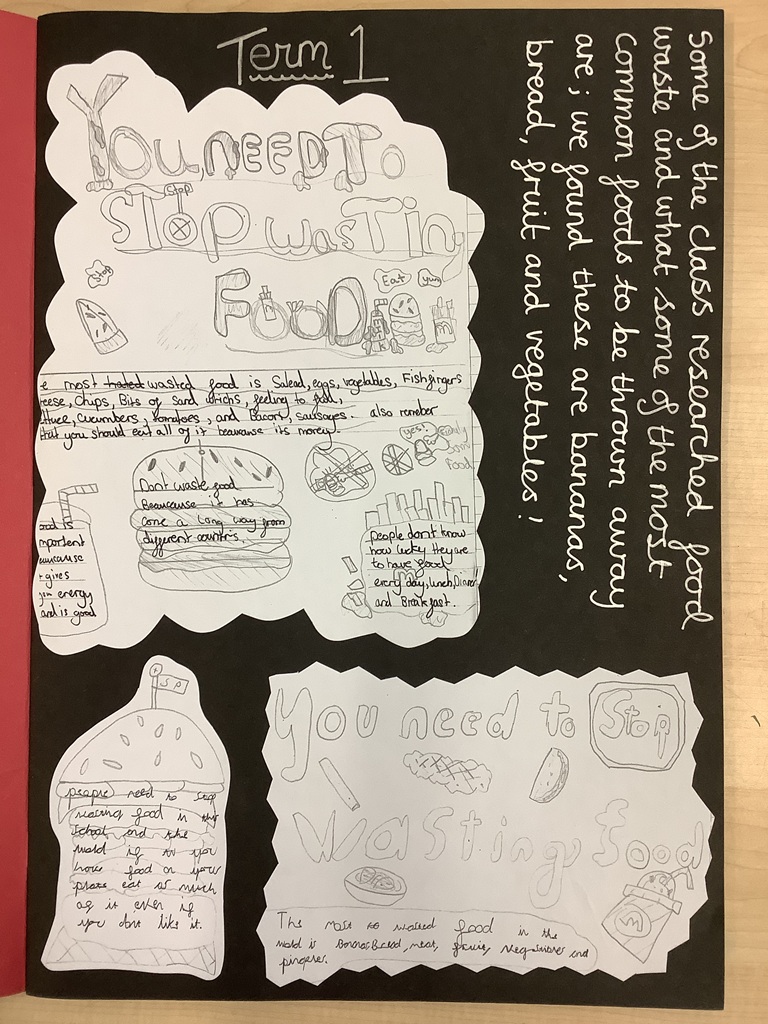 Term 1
You NEED To
Stop
STOP wasTing
Stop
Eat
yum
FOOD
e most hated wasted food is Salead, eggs, vegetables, Fishfingers
eese, Chips, Bits of sand wichs, feeding to fish,
ttuce, cucumbers, tomatoes, and Bacon, sausages. also rember
that you should eat all of it beacause its money.
yes!
Finely
Some
Food
Dont waste food
Beacause it has
come a long way from
different countrys.
ood is
mportent
eacause
t gives
you energy
and is good
people don't know
how lucky they are
to have food
every day, lunch, Dinner
and Breakfast.
Some of the class researched food
waste and what some of the most
common foods to be thrown away
are; we found these are bananas,
bread, fruit and vegetables!
people need to stop
wasting food in this
school and the
world if
you
have food on your
plate eat as much
as it even if
you dont like it.
You need to Stop
Wasting food
The most to wasted food in the
world is Bread, meat, and